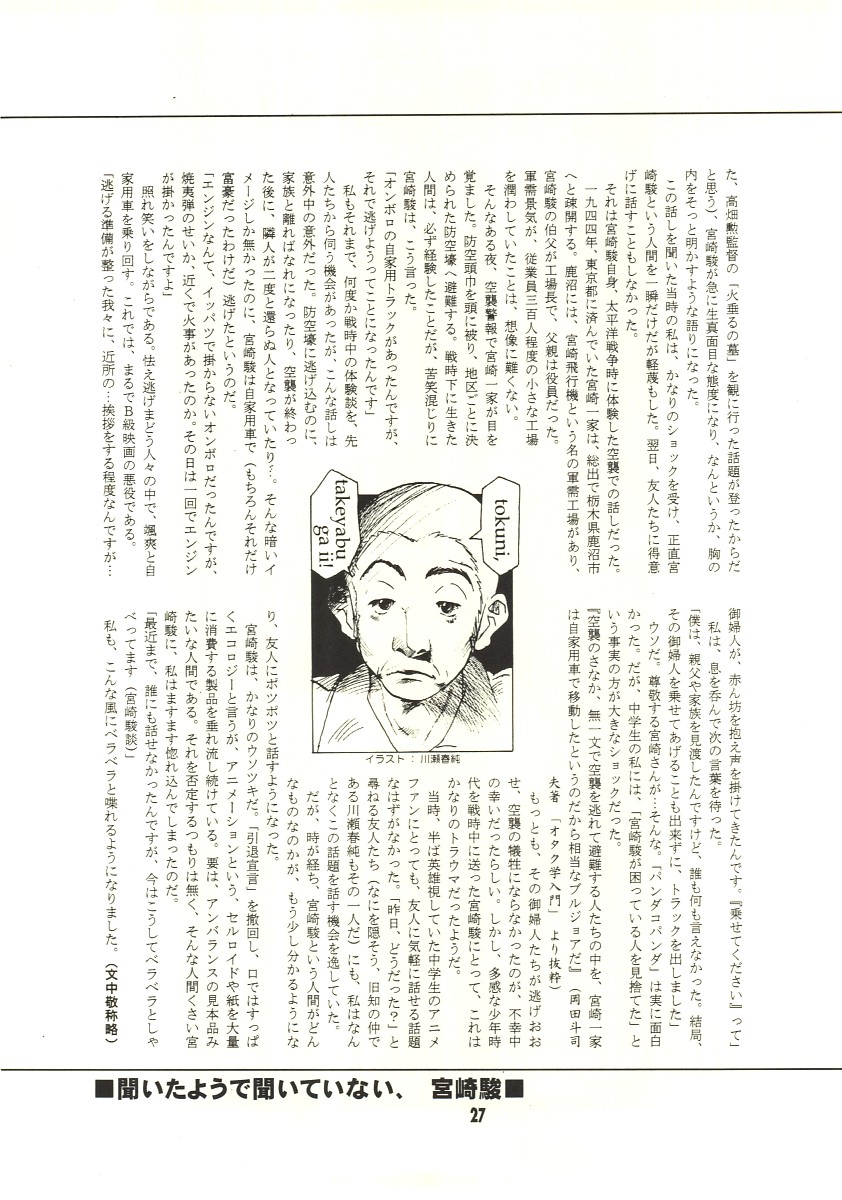 た、高畑勲監督の「火垂るの墓」を観に行った話題が登ったからだ
と思う)、宮崎駿が急に生真面目な態度になり、なんというか、胸の
内をそっと明かすような語りになった。
この話しを聞いた当時の私は、かなりのショックを受け、正直宮
崎駿という人間を一瞬だけだが軽蔑もした。翌日、友人たちに得意
げに話すこともしなかった。
それは宮崎駿自身、太平洋戦争時に体験した空襲での話しだった。
一九四四年、東京都に済んでいた宮崎一家は、総出で栃木県鹿沼市
へと疎開する。鹿沼には、宮崎飛行機という名の軍需工場があり、
宮崎駿の伯父が工場長で、父親は役員だった。
軍需景気が、従業員三百人程度の小さな工場
を潤わしていたことは、想像に難くない。
そんなある夜、空襲警報で宮崎一家が目を
覚ました。防空頭巾を頭に被り、地区ごとに決
められた防空壕へ避難する。戦時下に生きた
人間は、必ず経験したことだが、苦笑混じりに
宮崎駿は、こう言った。
「オンボロの自家用トラックがあったんですが、
それで逃げようってことになったんです」
私もそれまで、何度か戦時中の体験談を、先
人たちから伺う機会があったが、こんな話しは
意外中の意外だった。防空壕に逃げ込むのに、
家族と離ればなれになったり、空襲が終わっ
た後に、隣人が二度と還らぬ人となっていたり…。そんな暗いイ
メージしか無かったのに、宮崎駿は自家用車で(もちろんそれだけ
富豪だったわけだ)逃げたというのだ。
「エンジンなんて、イッパツで掛からないオンボロだったんですが、
焼夷弾のせいか、近くで火事があったのか。その日は一回でエンジン
が掛かったんですよ」
照れ笑いをしながらである。怯え逃げまどう人々の中で、颯爽と自
家用車を乗り回す。これでは、まるでB級映画の悪役である。
「逃げる準備が整った我々に、近所の…挨拶をする程度なんですが…
御婦人が、赤ん坊を抱え声を掛けてきたんです。『乗せてください』って」
私は、息を呑んで次の言葉を待った。
「僕は、親父や家族を見渡したんですけど、誰も何も言えなかった。結局、
その御婦人を乗せてあげることも出来ずに、トラックを出しました」
ウソだ。尊敬する宮崎さんが…そんな。「パンダコパンダ」は実に面白
かった。だが、中学生の私には、「宮崎駿が困っている人を見捨てた」と
いう事実の方が大きなショックだった。
『空襲のさなか、無一文で空襲を逃れて避難する人たちの中を、宮崎一家
は自家用車で移動したというのだから相当なブルジョアだ』(岡田斗司
夫著 「オタク学入門」より抜粋)
もっとも、その御婦人たちが逃げおお
せ、空襲の犠牲にならなかったのが、不幸中
の幸いだったらしい。しかし、多感な少年時
代を戦時中に送った宮崎駿にとって、これは
かなりのトラウマだったようだ。
当時、半ば英雄視していた中学生のアニメ
ファンにとっても、友人に気軽に話せる話題
なはずがなかった。「昨日、どうだった?」と
尋ねる友人たち(なにを隠そう、旧知の仲で
ある川瀬春純もその一人だ)にも、私はなん
となくこの話題を話す機会を逸していた。
だが、時が経ち、宮崎駿という人間がどん
なものなのかが、もう少し分かるようにな
り、友人にポツポツと話すようになった。
宮崎駿は、かなりのウソツキだ。「引退宣言」を撤回し、口ではすっぱ
くエコロジーと言うが、アニメーションという、セルロイドや紙を大量
に消費する製品を垂れ流し続けている。要は、アンバランスの見本品み
たいな人間である。それを否定するつもりは無く、そんな人間くさい宮
崎駿に、私はますます惚れ込んでしまったのだ。
「最近まで、誰にも話せなかったんですが、今はこうしてベラベラとしゃ
べってます(宮崎駿談)」
私も、こんな風にベラベラと喋れるようになりました。(文中敬称略)
tokuni,
takeyabu
ga ii!
イラスト:川瀬春純
■聞いたようで聞いていない、 宮崎駿■
27